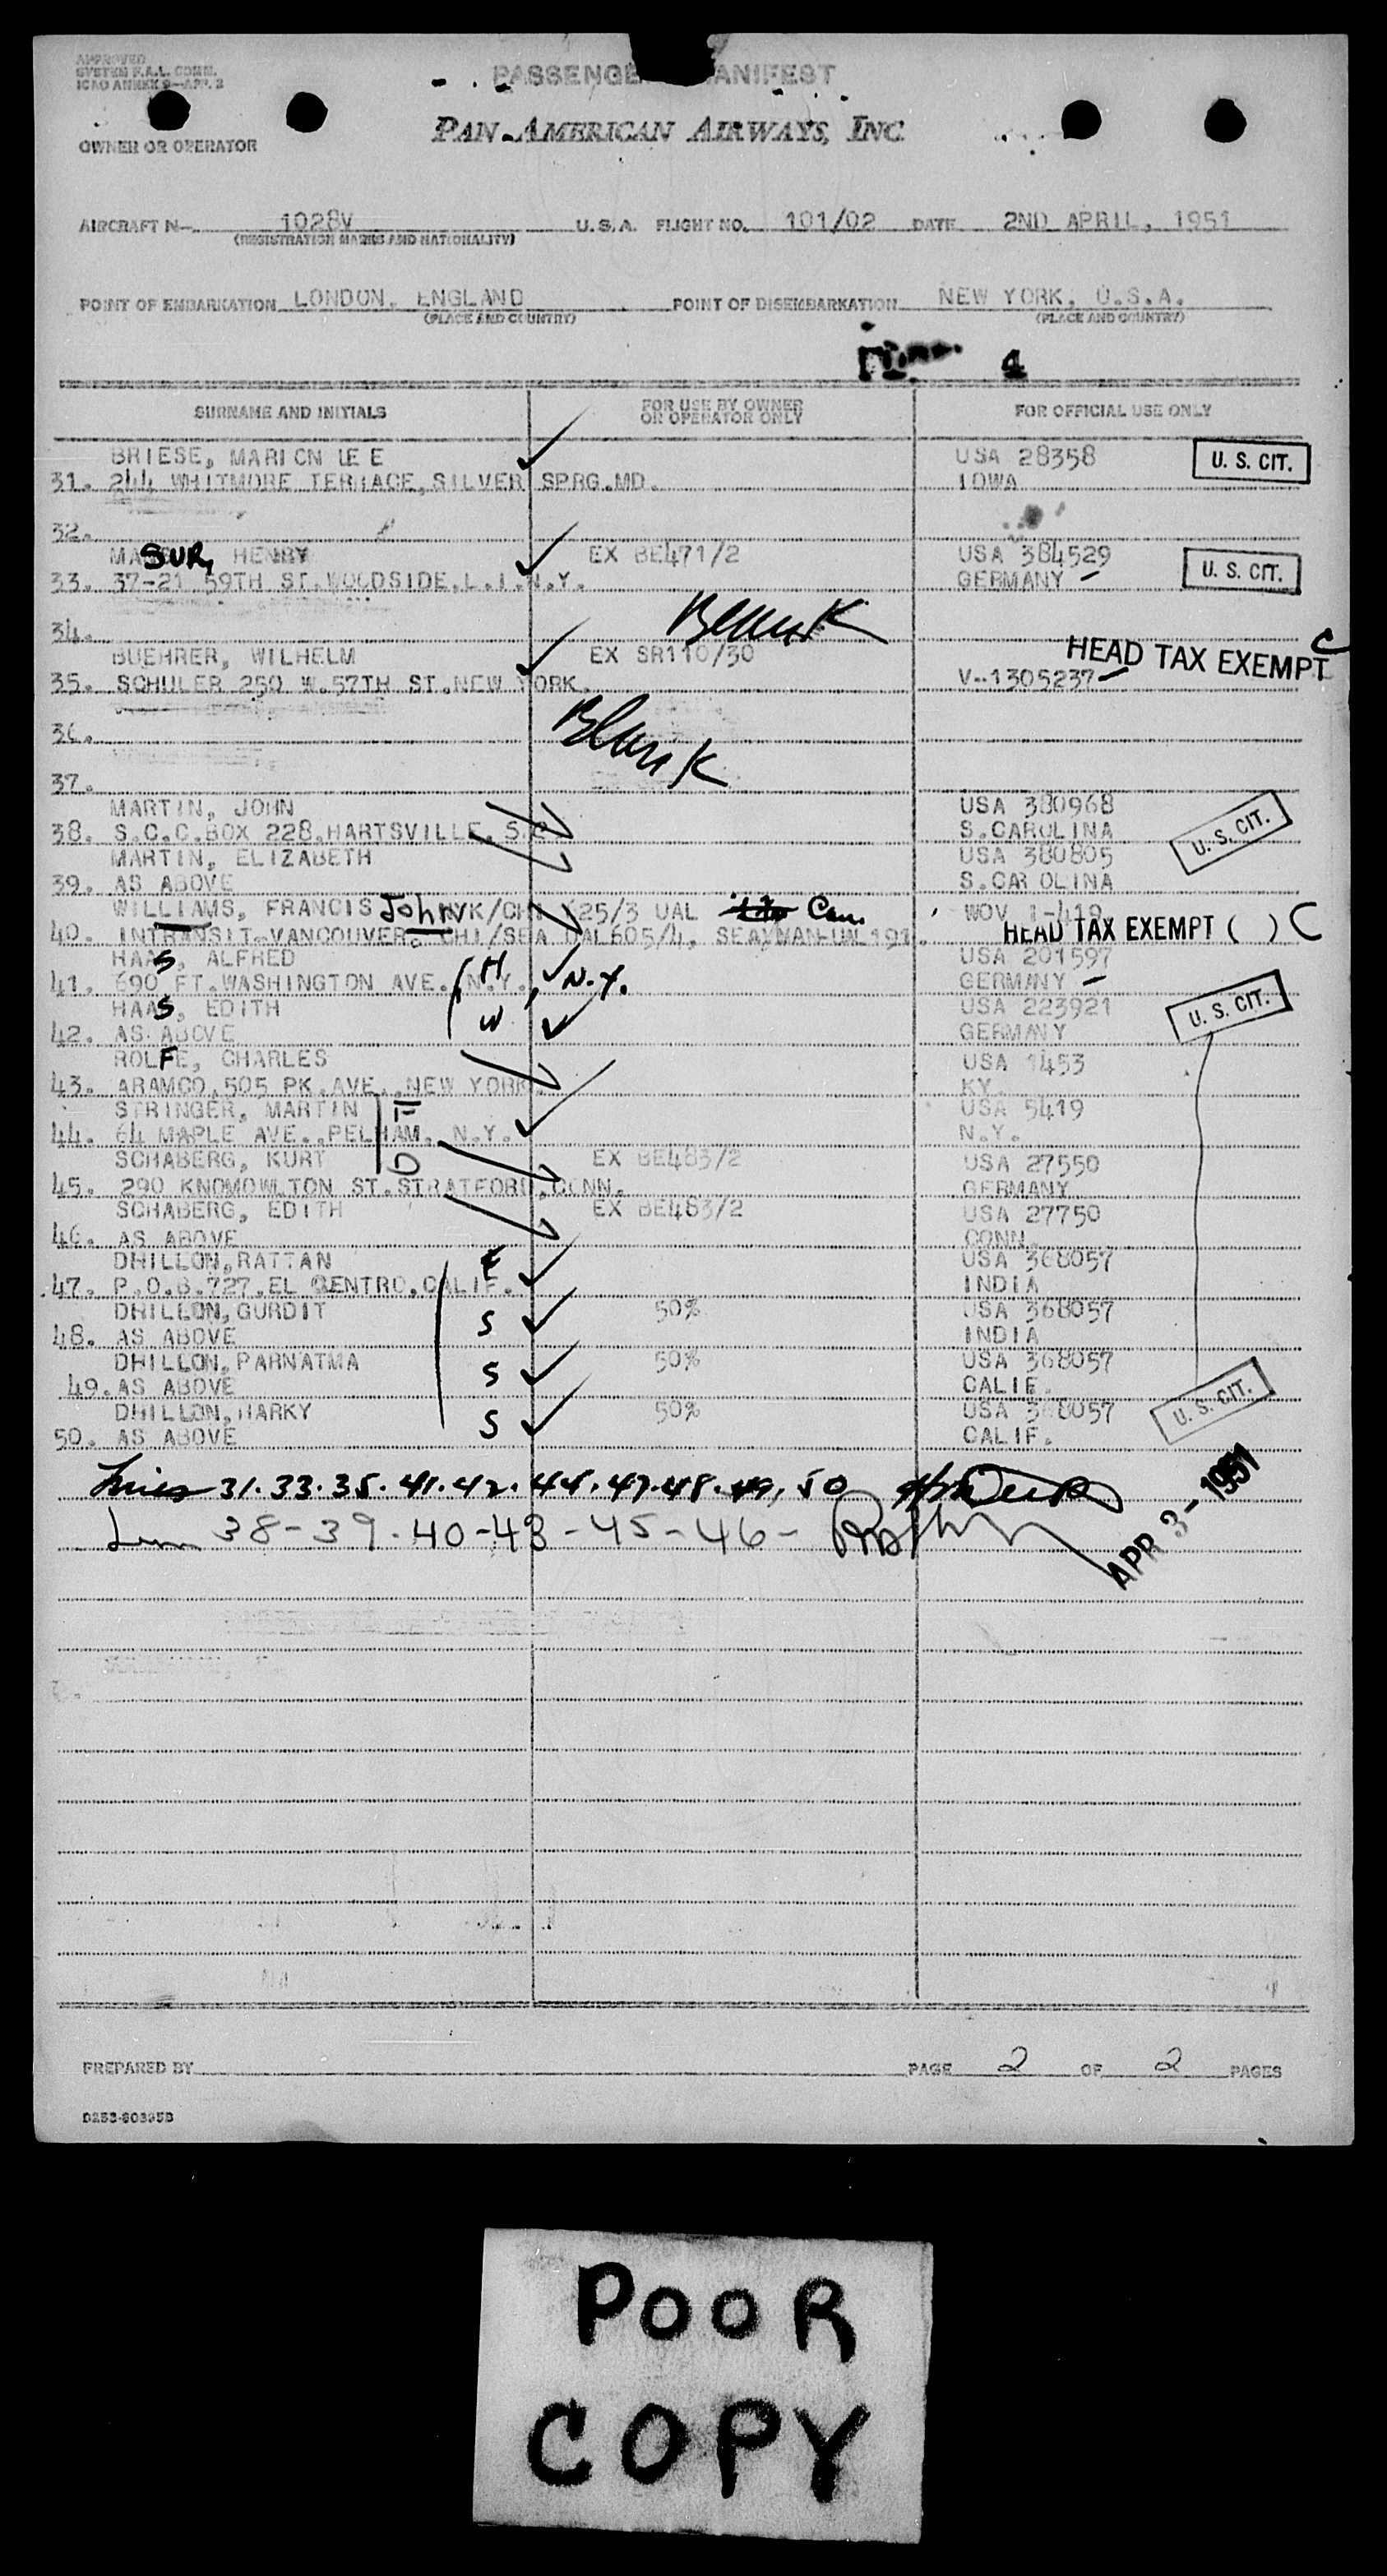 APPROVED
SYSTEM F.A.L. COMM.
ICAO ANNEX 9-APP. 3
PASSENGE ANIFEST
PAN AMERICAN AIRWAYS, INC
OWNER OR OPERATOR
AIRCRAFT N-. 1028V U.S.A. FLIGHT NO. 101/02 DATE 2ND APRIL, 1951
(REGISTRATION MARKS AND NATIONALITY)
POINT OF EMBARKATION LONDON, ENGLAND POINT OF DISEMBARKATION NEW YORK, U.S.A.
(PLACE AND COUNTRY) (PLACE AND COUNTRY)
4
SURNAME AND INITIALS FOR USE BY OWNER OR OPERATOR ONLY FOR OFFICIAL USE ONLY
BRIESE, MARION LEE USA 28358 U. S. CIT.
31. 244 WHITMORE TERRACE, SILVER SPRG.MD. IOWA
32.
MASUR, HENRY EX BE471/2 USA 384529
33. 37-21 59TH ST.WOODSIDE.L.I.N.Y. GERMANY U. S. CIT.
34. Blank
BUEHRER, WILHELM EX SR110/30 HEAD TAX EXEMPT C
35. SCHULER 250 W.57TH ST.NEW YORK. V-1305237
36. Blank
37.
MARTIN, JOHN USA 380968
38. S.C.C.BOX 228,HARTSVILLE, S.C. S.CAROLINA U. S. CIT.
MARTIN, ELIZABETH USA 380805
39. AS ABOVE S.CAROLINA
WILLIAMS, FRANCIS John 25/3 UAL Can. WOV 1-419
40. INTRANSIT-VANCOUVER. CHI/SEA UAL605/4, SEA/VAN-UAL191. HEAD TAX EXEMPT ( ) C
HAAS, ALFRED H USA 201597
41. 690 FT.WASHINGTON AVE.,N.Y., N.Y. GERMANY
HAAS, EDITH W USA 223921 U. S. CIT.
42. AS ABOVE GERMANY
ROLFE, CHARLES USA 1453
43. ARAMCO,505 PK.AVE.,NEW YORK. KY.
STRINGER, MARTIN USA 5419
44. 64 MAPLE AVE.,PELHAM, N.Y. N.Y.
SCHABERG, KURT EX BE483/2 USA 27550
45. 290 KNOMOWLTON ST.STRATFORD,CONN. GERMANY
SCHABERG, EDITH EX BE483/2 USA 27750
46. AS ABOVE CONN.
DHILLON,RATTAN F USA 368057
47. P.O.B.727,EL CENTRO,CALIF. INDIA
DHILLON,GURDIT S 50% USA 368057
48. AS ABOVE INDIA
DHILLON,PARNATMA S 50% USA 368057
49. AS ABOVE CALIF.
DHILLON,HARKY S 50% USA 368057 U. S. CIT.
50. AS ABOVE CALIF.
Lines 31.33.35.41.42.44.47.48.49,50
APR 3-1951
38-39-40-43-45-46-
PREPARED BY PAGE 2 OF 2 PAGES
POOR
COPY